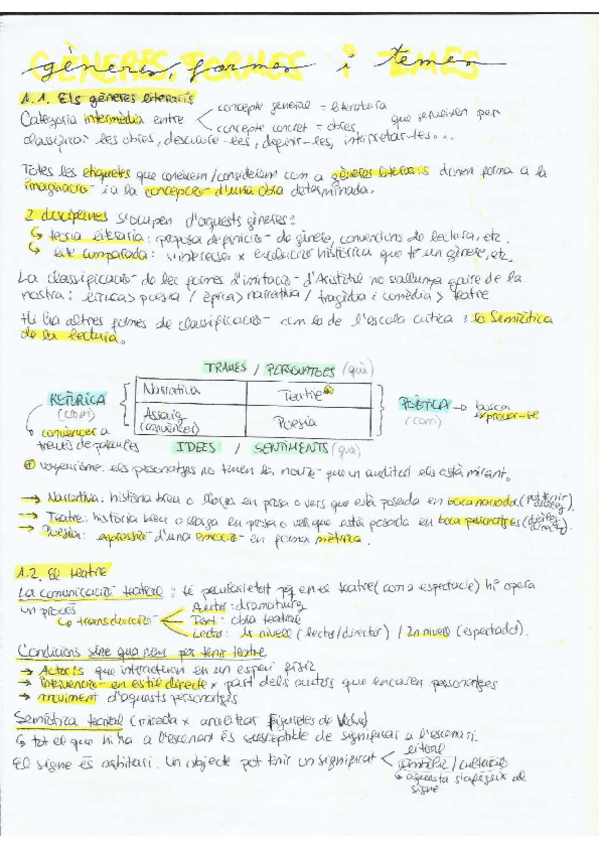 gèneres, formes i temes
1.1. Els gèneres literaris
Categoria intermèdia entre concepte general = literatura
concepte concret = obres, que serveixen per
classificar-les obres, descriure-les, definir-les, interpretar-les...
Totes les etiquetes que coneixem/considerem com a gèneres literaris donen forma a la
imaginació i a la concepció d'una obra determinada.
2 disciplines s'ocupen d'aquests gèneres:
teoria literària: proposa definició de gènere, convencions de lectura, etc.
lite comparada: s'interessa x evolució històrica que té un gènere, etc.
La classificació de les formes d'imitació d'Aristòtil no s'allunya gaire de la
nostra: lírica > poesia / èpica > narrativa / tragèdia i comèdia > teatre
Hi ha altres formes de classificació com la de l'escola crítica: la Semiòtica
de la lectura.
TRAMES / PERSONATGES (què)
RETÒRICA (com) Narrativa Teatre POÈTICA (com) → busca expressar-se
convèncer a través de Assaig (convèncer) Poesia
IDEES / SENTIMENTS (què)
voyeurisme: els personatges no tenen la noció que un auditori els està mirant.
→ Narrativa: història breu o llarga en prosa o vers que està posada en boca narrador
→ Teatre: història breu o llarga en prosa o vers que està posada en boca personatges
→ Poesia: expressió d'una emoció en forma mètrica.
1.2. El teatre
La comunicació teatral: té peculiaritat pq en el teatre (com a espectacle) hi opera
un procés
transducció Autor: dramaturg
Text: obra teatral
Lector: 1r nivell (lector/director) / 2n nivell (espectador).
Condicions sine qua non per tenir teatre
→ Actor/s que interactuen en un espai físic
→ intervenció en estil directe x part dels actors que encarnen personatges
→ moviment d'aquests personatges
Semiòtica teatral (mirada x analitzar
tot el que hi ha a l'escenari és susceptible de significar a l'escenari.
El signe és arbitrari. Un objecte pot tenir un significat literal
simbòlic/cultural
aquesta s'afegeix al
signe